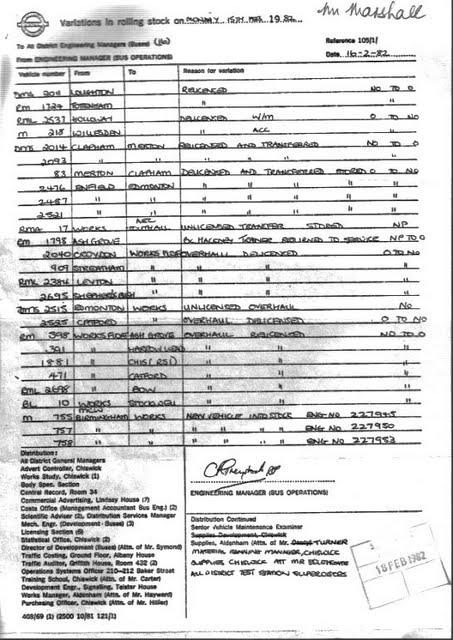 Mr Marshall
Variations in rolling stock on MONDAY 15TH FEB 19 82
To All District Engineering Managers (Buses) (16)
Reference 105/1/
From ENGINEERING MANAGER (BUS OPERATIONS)
Date 16-2-82
Vehicle number From To Reason for variation
DMS 2011 LOUGHTON RELICENCED NO TO O
RM 1724 TOTTENHAM " "
RML 2537 HOLLOWAY DELICENCED W/M O TO NO
M 218 WILLESDEN " ACC "
DMS 2014 CLAPHAM MERTON RELICENCED AND TRANSFERRED NO TO O
2093 " " " " " "
83 MERTON CLAPHAM DELICENCED AND TRANSFERRED STORED O TO NO
2476 ENFIELD EDMONTON " " " " "
2487 " " " " " " "
2521 " " " " " " "
RMA 17 WORKS AEC SOUTHALL UNLICENSED TRANSFER STORED NP
RM 1798 ASH GROVE EX HACKNEY TRAINER RETURNED TO SERVICE NP TO O
2040 CROYDON WORKS OVERHAUL DELICENCED O TO NO
909 STREATHAM " " " "
RML 2384 LEYTON " " " "
2695 SHEPHERDS BUSH " " " "
DMS 2515 EDMONTON WORKS UNLICENSED OVERHAUL NO
2525 CATFORD " OVERHAUL DELICENSED O TO NO
RM 398 WORKS ASH GROVE OVERHAUL RELICENSED NO TO O
1391 " " " "
1881 " CHIS (RSD) " " "
471 " CATFORD " " "
RML 2698 " BOW " " "
BL 10 WORKS " " "
M 755 MCW BIRMINGHAM WORKS NEW VEHICLE INTO STOCK ENG NO 227945
757 " " " " " " ENG NO. 227950
758 " " " " " " ENG NO 227953
Distribution:
All District General Managers
Advert Controller, Chiswick
Works Study, Chiswick (1)
Body Spec. Section
Central Record, Room 34
Commercial Advertising, Lindsay House (7)
Costs Office (Management Accountant Bus Eng.) (2)
Scientific Adviser (2), Distribution Services Manager
Mech. Engr. (Development - Buses) (3)
Licensing Section (6)
Statistical Office, Chiswick (2)
Director of Development (Buses) (Attn. of Mr. Symond)
Traffic Costing, Ground Floor, Albany House
Traffic Auditor, Griffith House, Room 432 (2)
Operations Systems Officer 210-212 Baker Street
Training School, Chiswick (Attn. of Mr. Carter)
Development Engr., Signalling, Telstar House
Works Manager, Aldenham (Attn. of Mr. Hayward)
Purchasing Officer, Chiswick (Attn. of Mr. Hiller)
403/69 (1) (2500 10/81 121/1)
ENGINEERING MANAGER (BUS OPERATIONS)
Distribution Continued
Senior Vehicle Maintenance Examiner
Supplies Development, Chiswick
Supplies, Aldenham (Attn. of Mr. TURNER
MATERIAL PLANNING MANAGER, CHISWICK
SUPPLIES CHISWICK ATT MR
ALL DISTRICT TEST STATION SUPERVISORS
18 FEB 1982